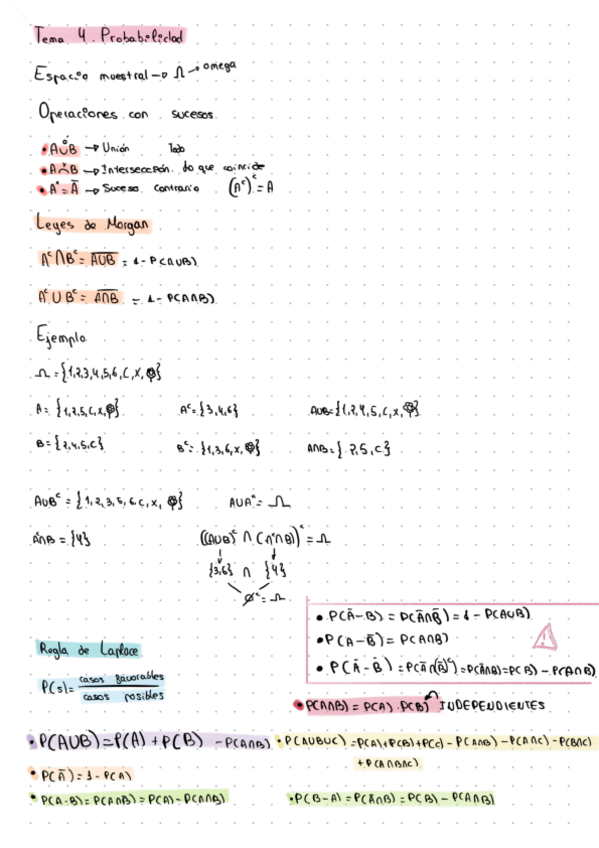 Tema 4. Probabilidad
Espacio muestral → Ω → omega
Operaciones con sucesos
• A∪B → Unión Todo
• A∩B → Intersección. lo que coincide
• Aᶜ = Ā → Suceso contrario (Aᶜ)ᶜ = A
Leyes de Morgan
Aᶜ∩Bᶜ = \overline{A∪B} = 1 - P(A∪B)
Aᶜ∪Bᶜ = \overline{A∩B} = 1 - P(A∩B)
Ejemplo
Ω = {1,2,3,4,5,6,C,X,}
A = {1,2,5,C,X,} Aᶜ = {3,4,6} A∪B = {1,2,4,5,C,X,}
B = {2,4,5,C} Bᶜ = {1,3,6,X,} A∩B = {2,5,C}
A∪Bᶜ = {1,2,3,5,6,C,X,} A∪Aᶜ = Ω
Aᶜ∩B = {4} ((A∪B)ᶜ ∩ (Aᶜ∩B))ᶜ = Ω
{3,6} ∩ {4}
∅ᶜ = Ω
• P(Ā-B) = P(Ā∩B̄) = 1 - P(A∪B)
• P(A-B̄) = P(A∩B)
• P(Ā-B̄) = P(Ā∩(B̄)ᶜ) = P(Ā∩B) = P(B) - P(A∩B)
Regla de Laplace
P(s) = casos favorables
casos posibles
• P(A∩B) = P(A) · P(B) INDEPENDIENTES
• P(A∪B) = P(A) + P(B) - P(A∩B) • P(A∪B∪C) = P(A)+P(B)+P(C) - P(A∩B) - P(A∩C) - P(B∩C)
+ P(A∩B∩C)
• P(Ā) = 1 - P(A)
• P(A-B) = P(A∩B̄) = P(A) - P(A∩B) • P(B-A) = P(Ā∩B) = P(B) - P(A∩B)